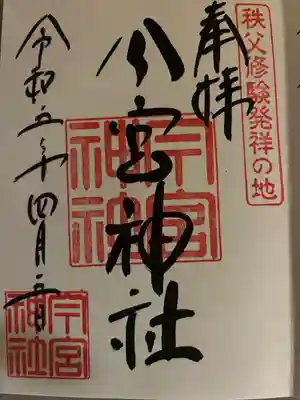 秩父修験発祥の地
奉拝
今宮神社
今宮神社
令和五年四月 日
今宮神社